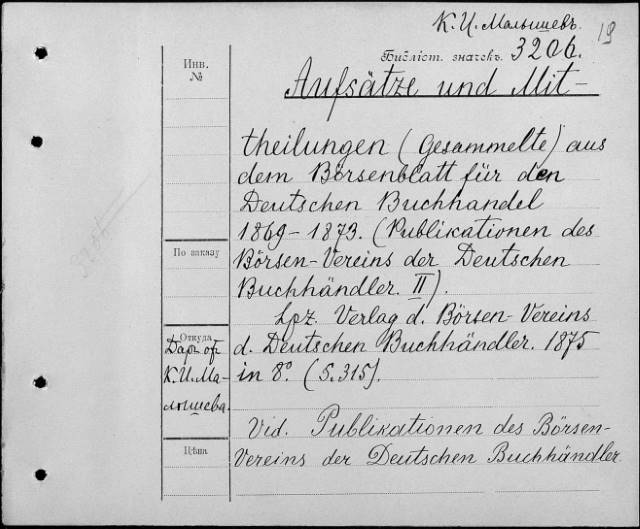 К. И. Малышевъ.
19
Инв.
№
Библіот. значекъ. 3206.
Aufsätze und Mit-
theilungen (Gesammelte) aus
dem Börsenblatt für den
Deutschen Buchhandel
1869-1873. (Publikationen des
По заказу
Börsen-Vereins der Deutschen
Buchhändler. II).
Lpz. Verlag d. Börsen-Vereins
Откуда
Дар. от
d. Deutschen Buchhändler. 1875
К. И. Ма-
in 8°. (S. 315).
лышева.
Vid. Publikationen des Börsen-
Цѣна
Vereins der Deutschen Buchhändler.
3206